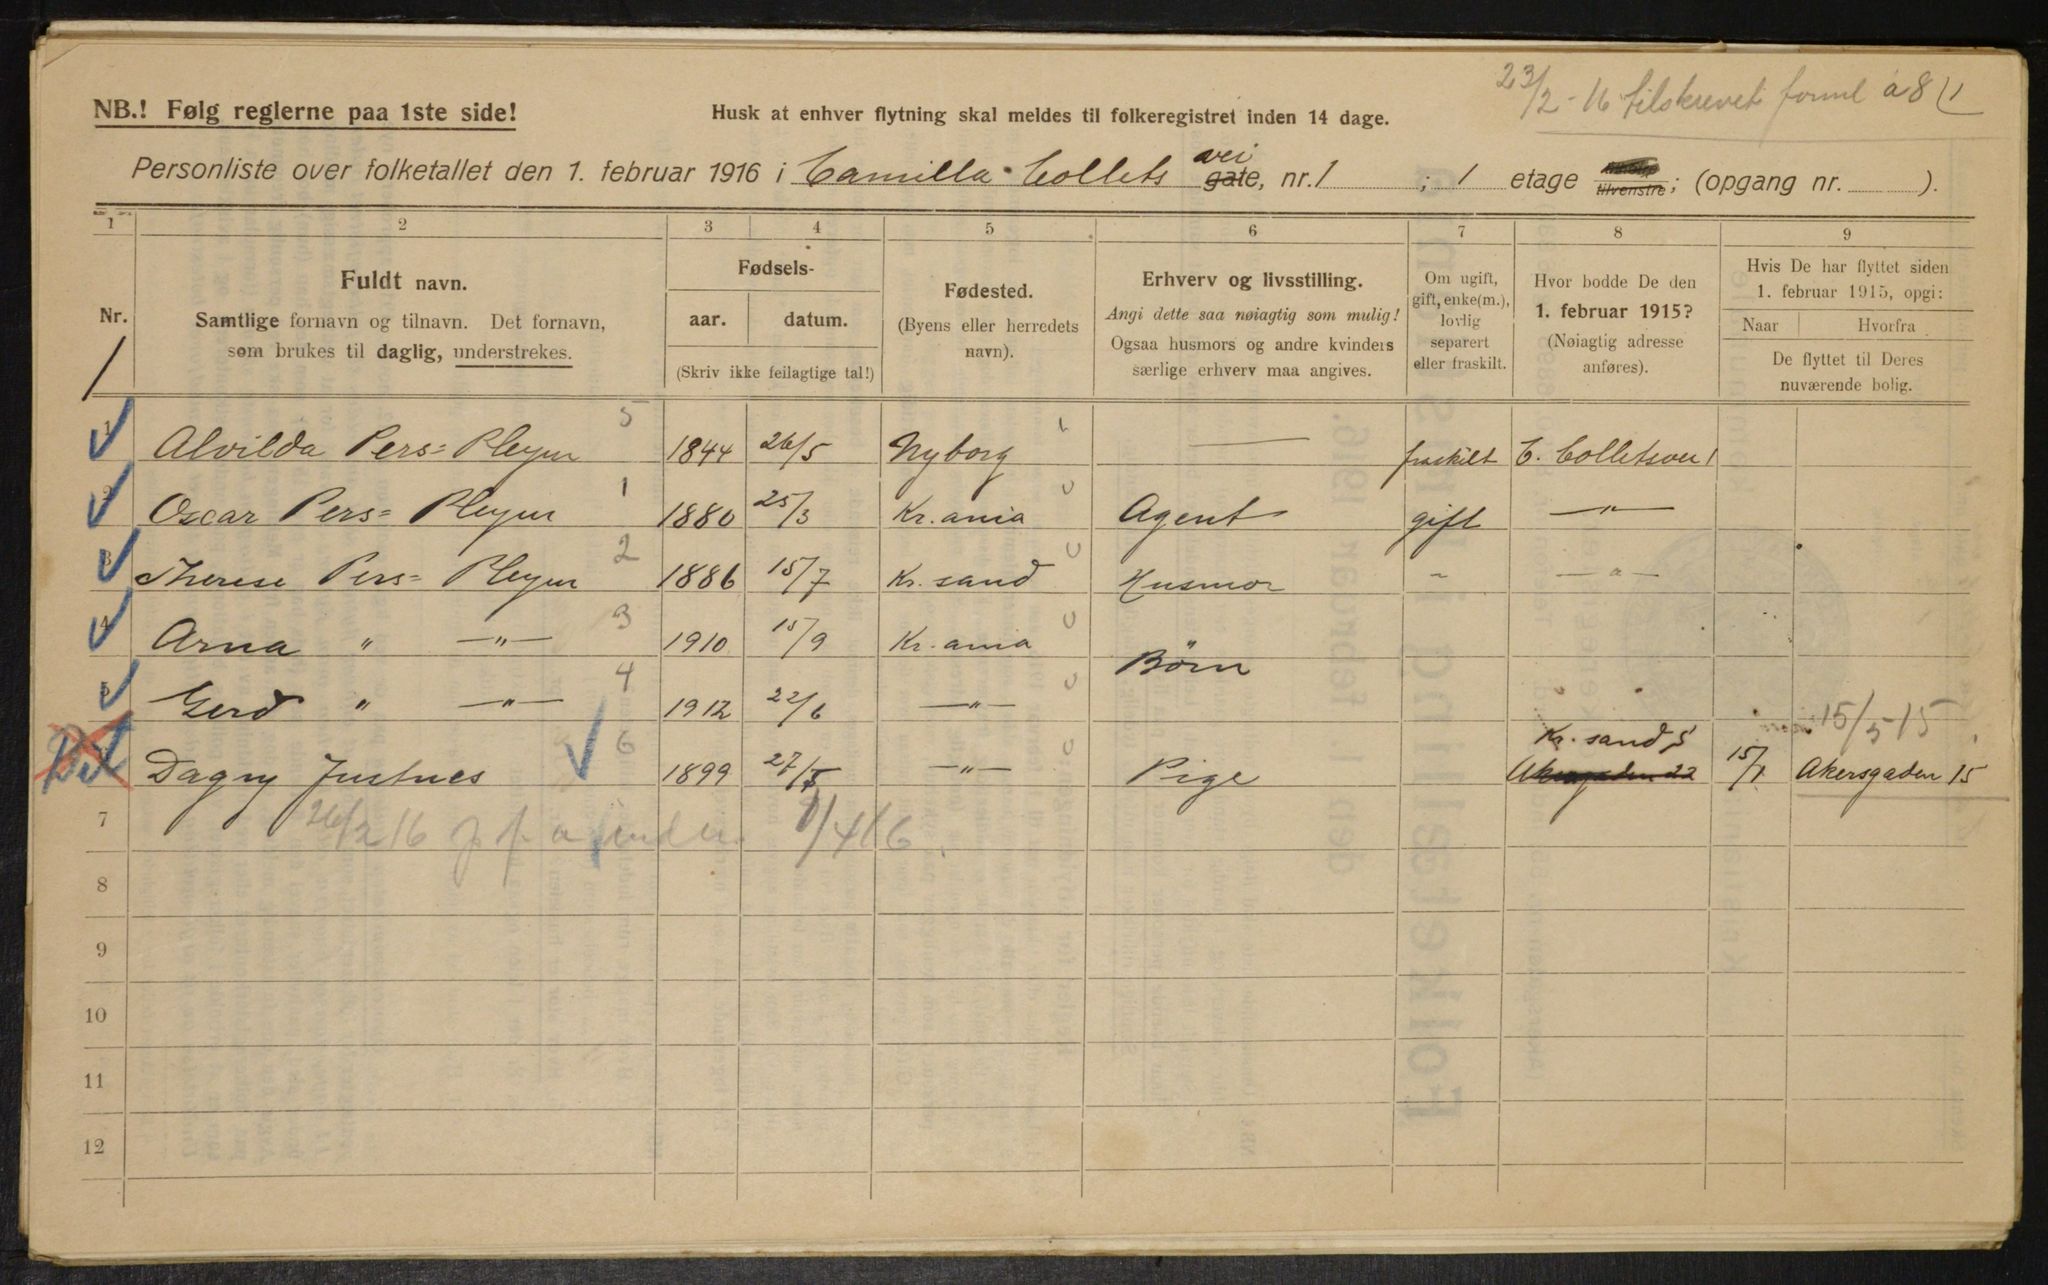 23/2-16 tilskrevet forml a 8/1
NB.! Følg reglerne paa 1ste side!
Husk at enhver flytning skal meldes til folkeregistret inden 14 dage.
Personliste over folketallet den 1. februar 1916 i Camilla Collets gate, vei nr. 1 ; 1 etage tilvenstre; (opgang nr. ).
1 2 3 4 5 6 7 8 9
Nr.
Fuldt navn.
Samtlige fornavn og tilnavn. Det fornavn,
som brukes til daglig, understrekes.
Fødsels-
aar. datum.
(Skriv ikke feilagtige tal!)
Fødested.
(Byens eller herredets
navn).
Erhverv og livsstilling.
Angi dette saa nøiagtig som mulig!
Ogsaa husmors og andre kvinders
særlige erhverv maa angives.
Om ugift,
gift, enke(m.),
lovlig
separert
eller fraskilt.
Hvor bodde De den
1. februar 1915?
(Nøiagtig adresse
anføres).
Hvis De har flyttet siden
1. februar 1915, opgi:
Naar Hvorfra
De flyttet til Deres
nuværende bolig.
1 Alvilda Pers=Pleym 5 1844 26/5 Nyborg — fraskilt C. Colletsvei 1
2 Oscar Pers=Pleym 1 1880 25/3 Kr.ania Agent gift —"—
3 Therese Pers=Pleym 2 1886 15/7 Kr.sand Husmor " —"—
4 Arna " —"— 3 1910 15/9 Kr.ania
Børn
5 Gerd " —"— 4 1912 22/6 —"—
15/5-15
Kr.sand S
Dagny Justnes 6 1899 27/5 —"— Pige Akersgaden 22 15/1 Akersgaden 15
7 26/2 16 1/4 16.
8
9
10
11
12